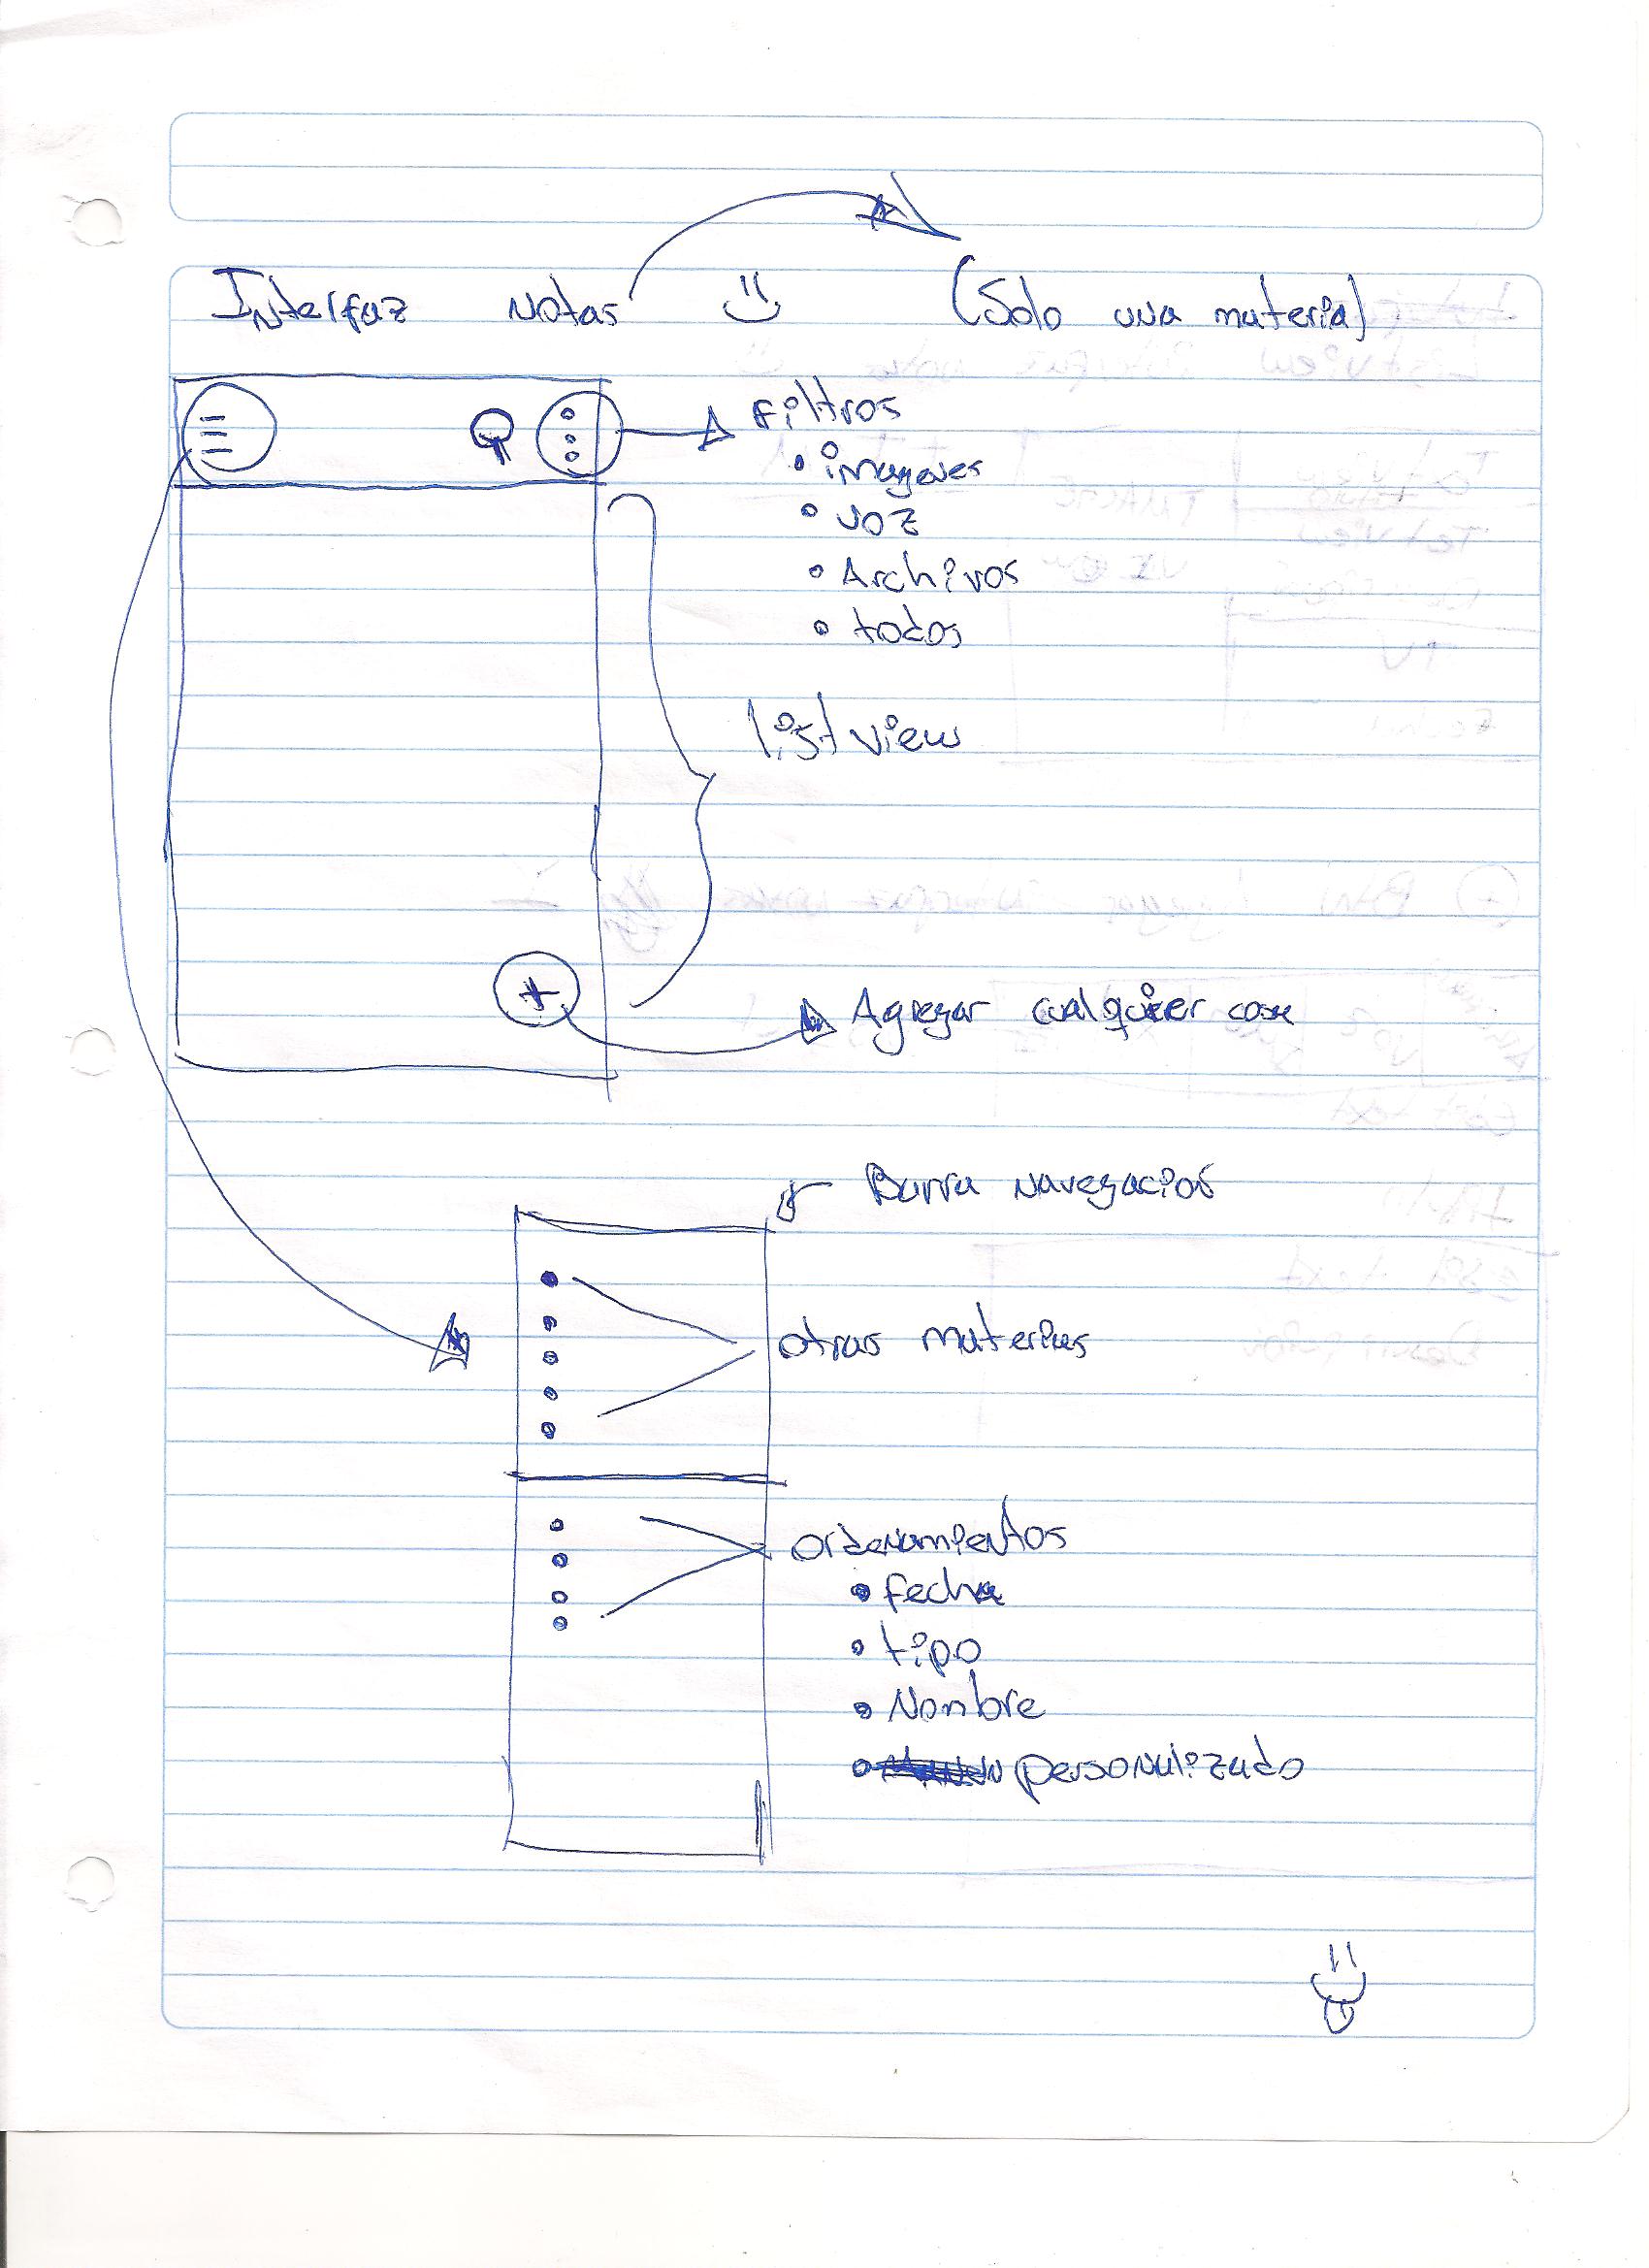 Interfaz Notas (Solo una materia)
Filtros
• imagenes
• voz
• Archivos
• todos
list view
+
Agregar cualquier cosa
Barra navegacion
otras materias
ordenamientos
• fecha
• tipo
• Nombre
• personalizado